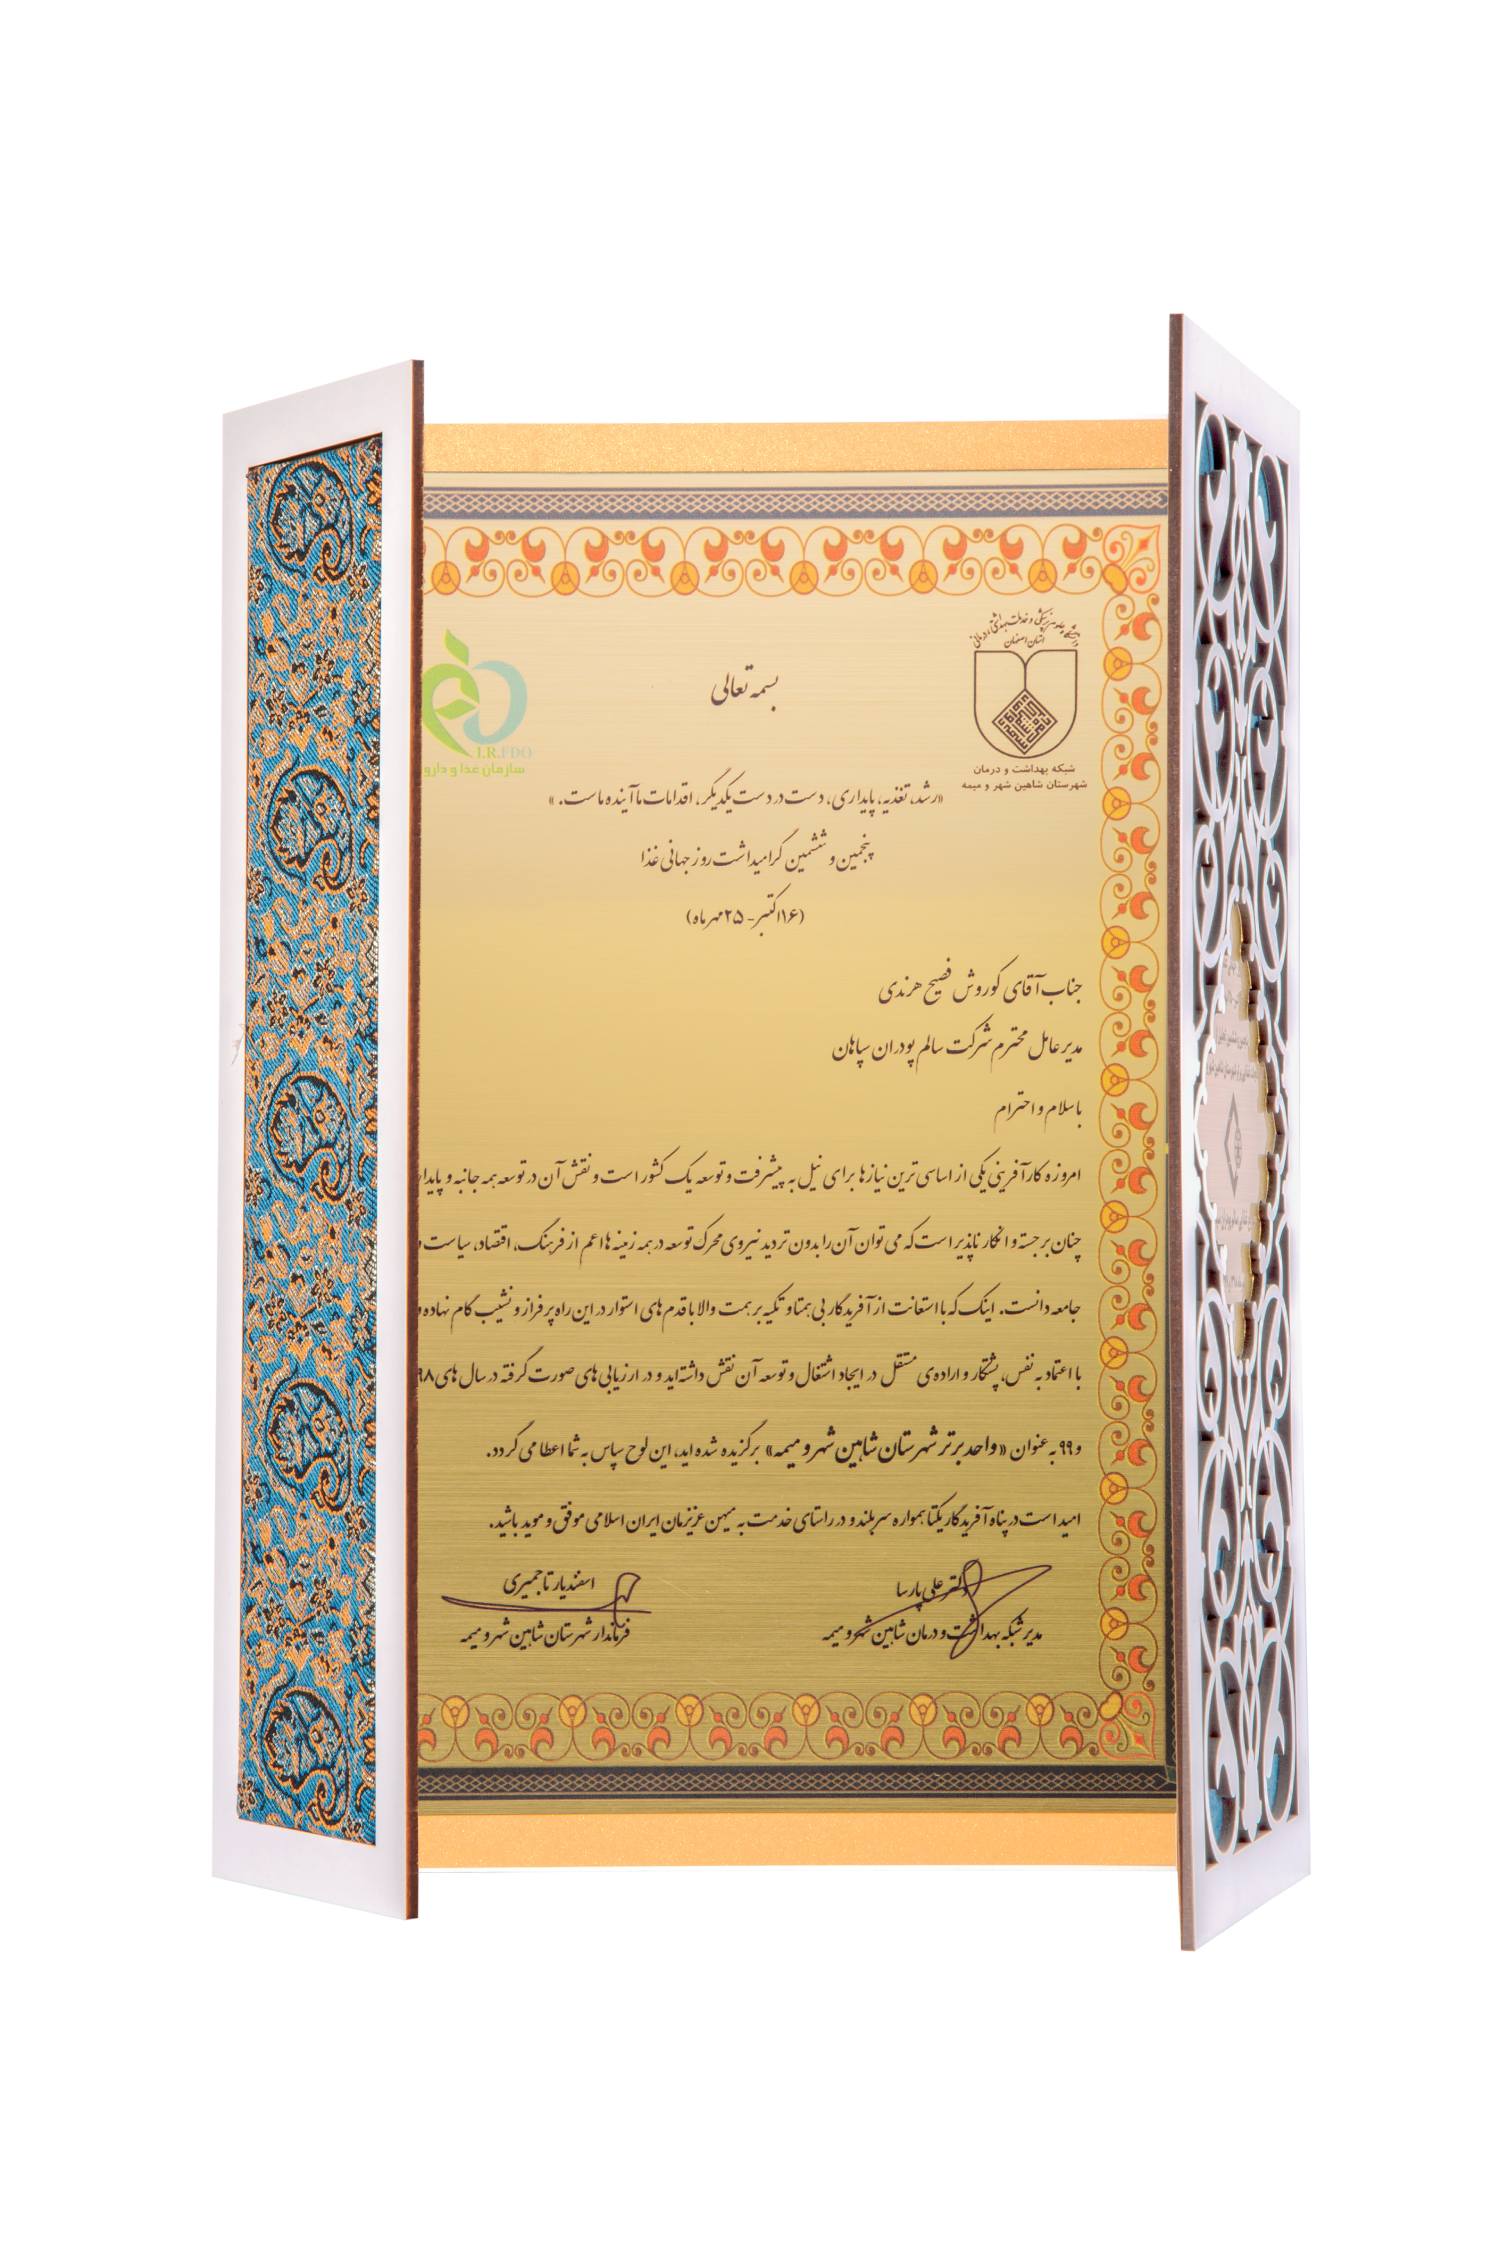 دانشگاه علوم پزشکی و خدمات بهداشتی درمانی
استان اصفهان
شبکه بهداشت و درمان
شهرستان شاهین شهر و میمه
I.R.FDO
سازمان غذا و دارو
بسمه تعالی
«رشد، تغذیه، پایداری، دست در دست یکدیگر، اقدامات ما آینده ماست.»
پنجمین و ششمین گرامیداشت روز جهانی غذا
(۱۶اکتبر - ۲۵مهرماه)
جناب آقای کوروش فصیح هرندی
مدیر عامل محترم شرکت سالم پودران سپاهان
با سلام و احترام
امروزه کارآفرینی یکی از اساسی ترین نیازها برای نیل به پیشرفت و توسعه یک کشور است و نقش آن در توسعه همه جانبه و پایدار
چنان برجسته و انکار ناپذیر است که می توان آن را بدون تردید نیروی محرک توسعه در همه زمینه ها اعم از فرهنگ، اقتصاد، سیاست و
جامعه دانست. اینک که با استعانت از آفریدگار بی همتا و تکیه بر همت والا با قدم های استوار در این راه پر فراز و نشیب گام نهاده و
با اعتماد به نفس، پشتکار و اراده ی مستقل در ایجاد اشتغال و توسعه آن نقش داشته اید و در ارزیابی های صورت گرفته در سال های ۹۸
و ۹۹ به عنوان «واحد برتر شهرستان شاهین شهر و میمه» برگزیده شده اید، این لوح سپاس به شما اعطا می گردد.
امید است در پناه آفریدگار یکتا همواره سربلند و در راستای خدمت به میهن عزیزمان ایران اسلامی موفق و موید باشید.
دکتر علی پارسا
مدیر شبکه بهداشت و درمان شاهین شهر و میمه
اسفندیار تاجمیری
فرماندار شهرستان شاهین شهر و میمه